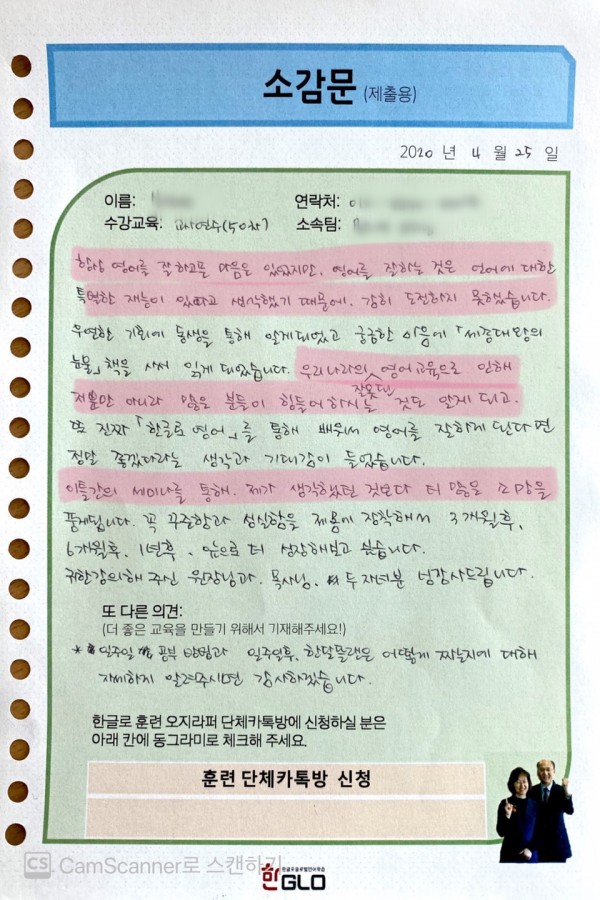 소감문 (제출용)
2020 년 4 월 25 일
이름: 연락처:
수강교육: (50차) 소속팀:
항상 영어를 잘 하고픈 마음은 있었지만, 영어를 잘하는 것은 언어에 대한
특별한 재능이 있다고 생각했기 때문에, 감히 도전하지 못했습니다.
우연한 기회에 동생을 통해 알게되었고 궁금한 마음에 「세종대왕의
눈물」 책을 사서 읽게 되었습니다. 우리나라의 잘못된 영어교육으로 인해
저뿐만 아니라 많은 분들이 힘들어하시는 것도 알게 되고,
또 진짜 「한글로 영어」를 통해 배워서 영어를 잘하게 된다면
정말 좋겠다라는 생각과 기대감이 들었습니다.
이틀간의 세미나를 통해, 제가 생각했던 것보다 더 많은 소망을
품게됩니다. 꼭 꾸준함과 성실함을 제 몸에 장착해서 3개월후,
6개월후, 1년후, 앞으로 더 성장해보고 싶습니다.
귀한강의해 주신 원장님과, 목사님, 두 자녀분 넘감사드립니다.
또 다른 의견:
(더 좋은 교육을 만들기 위해서 기재해주세요!)
* 일주일 공부 방법과 일주일후, 한달플랜은 어떻게 짜는지에 대해
자세하게 알려주시면 감사하겠습니다.
한글로 훈련 오지라퍼 단체카톡방에 신청하실 분은
아래 칸에 동그라미로 체크해 주세요.
훈련 단체카톡방 신청
CS CamScanner로 스캔하기
한GLO